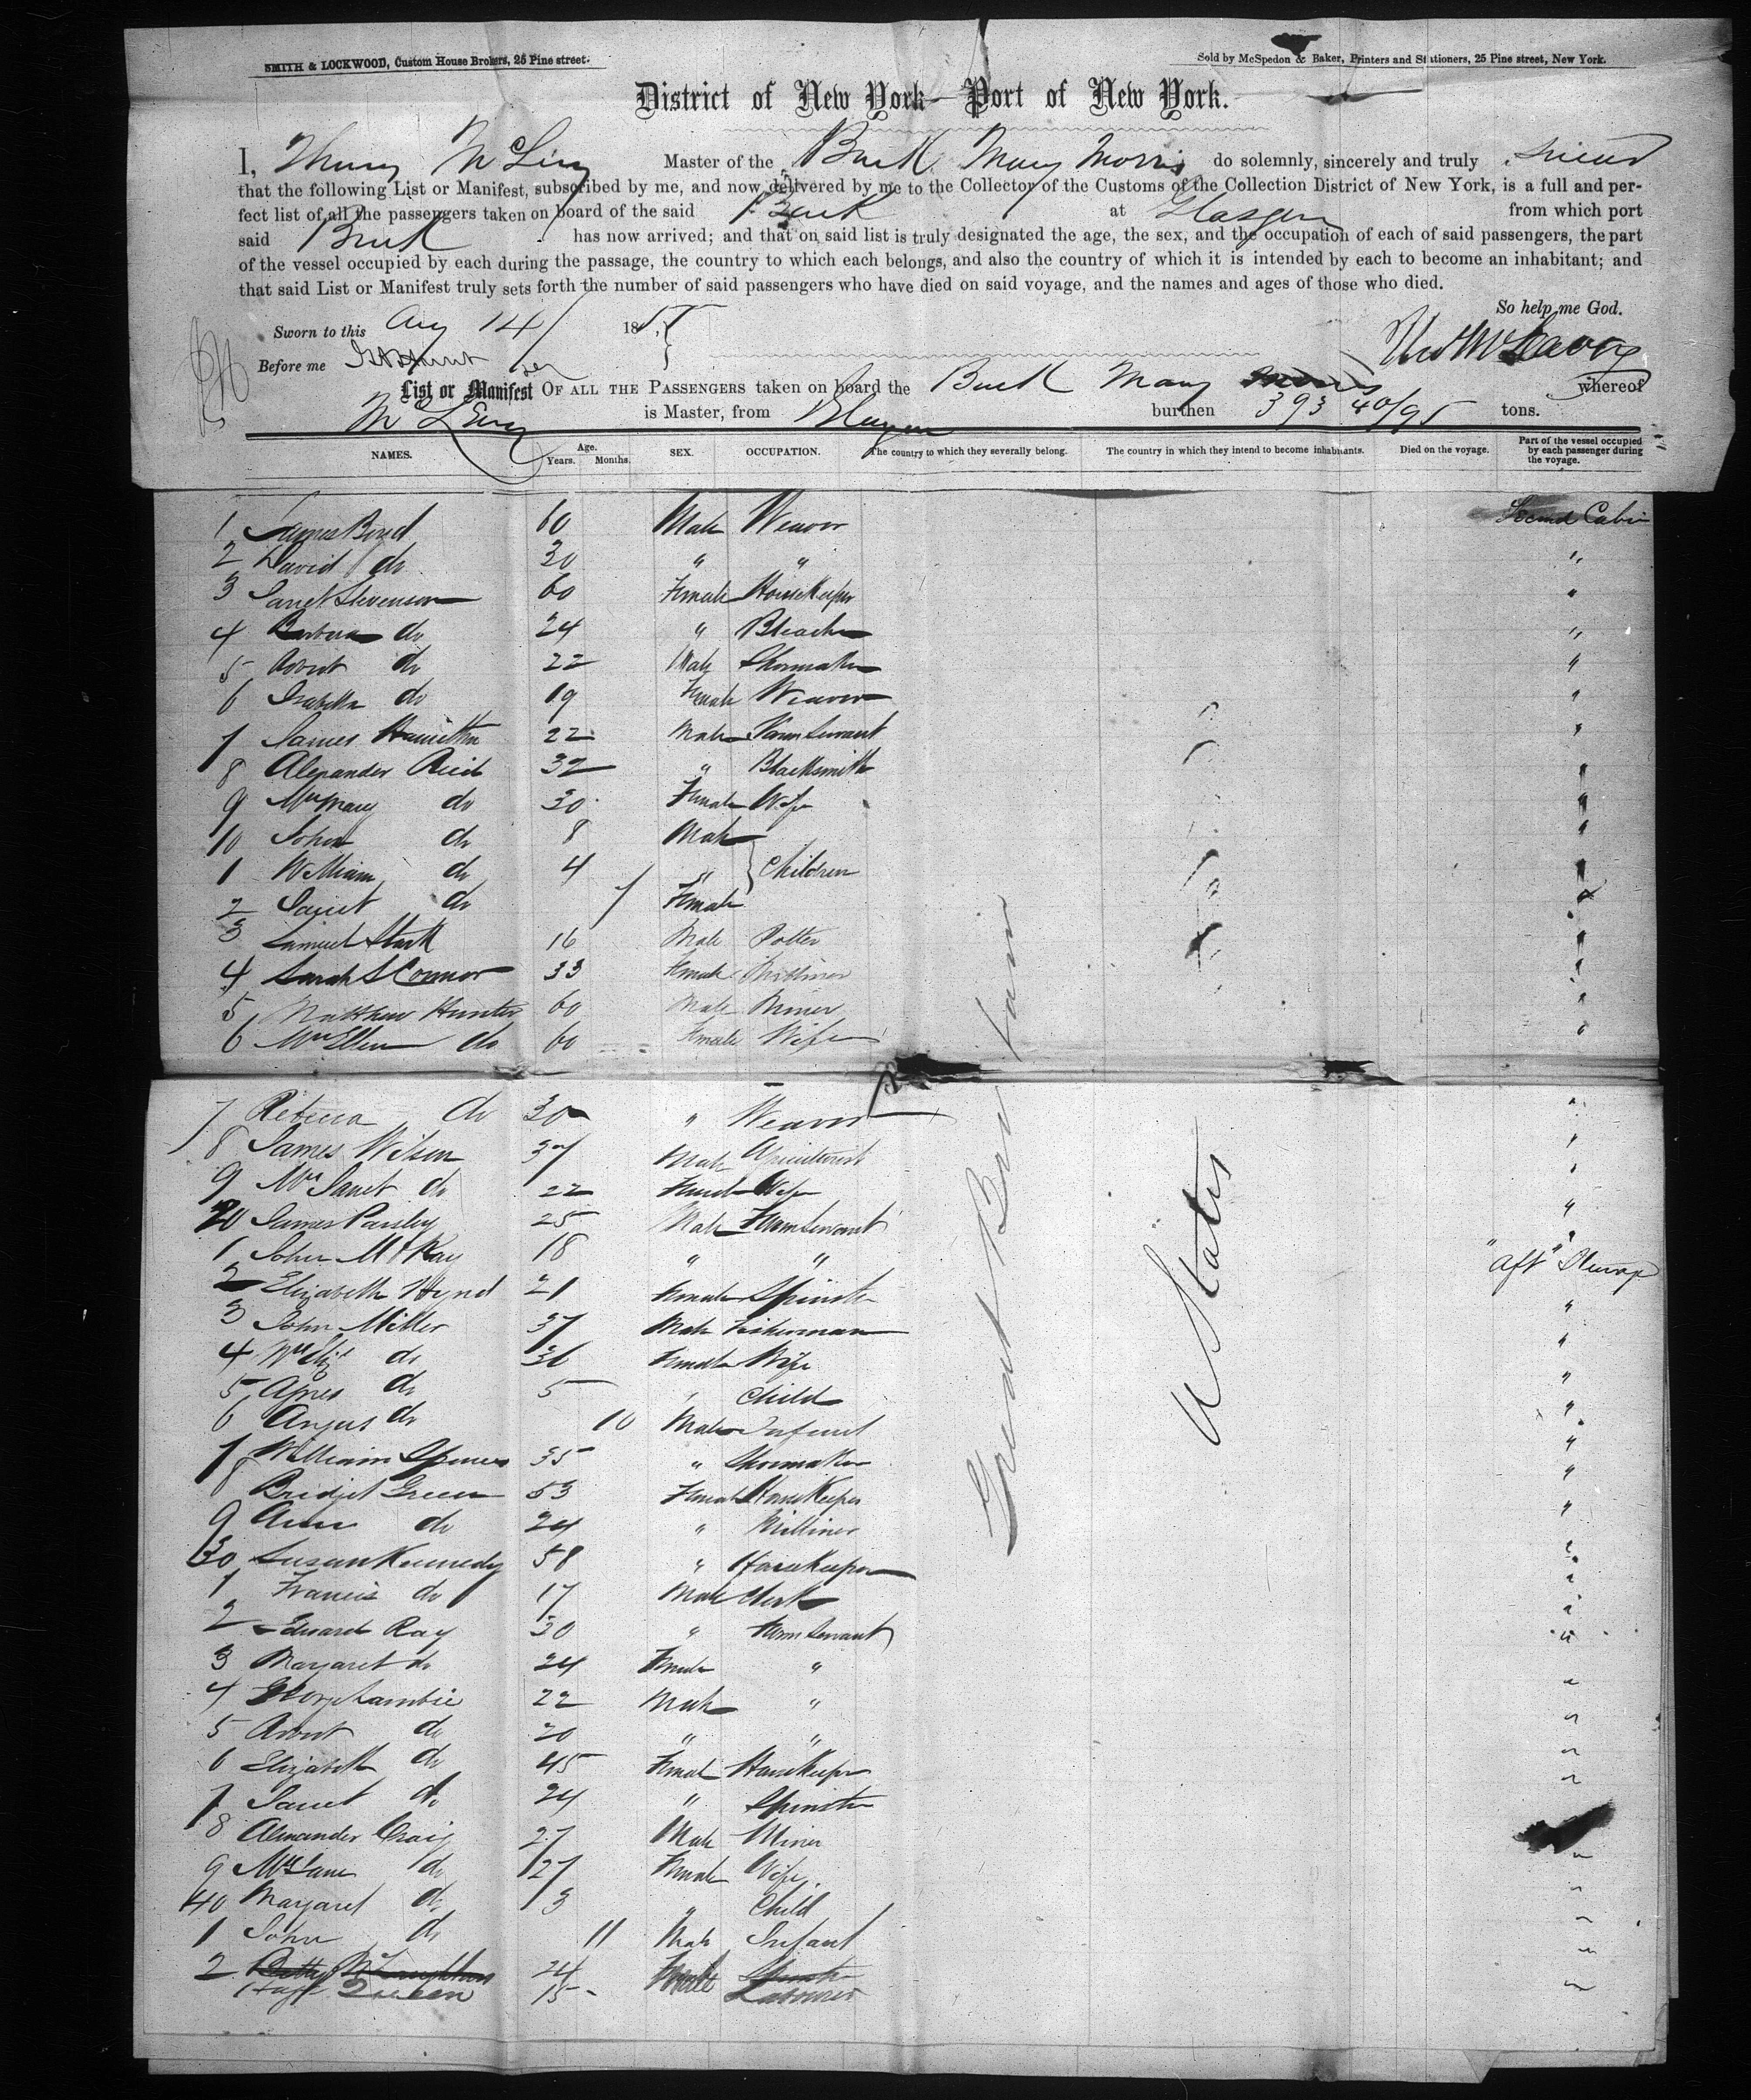 SMITH & LOCKWOOD, Custom House Brokers, 25 Pine street.
Sold by McSpedon & Baker, Printers and Stationers, 25 Pine street, New York.
District of New York—Port of New York.
I, Master of the Bark Mary Morris do solemnly, sincerely and truly swear
that the following List or Manifest, subscribed by me, and now delivered by me to the Collector of the Customs of the Collection District of New York, is a full and per-
fect list of all the passengers taken on board of the said Bark at Glasgow from which port
said Bark has now arrived; and that on said list is truly designated the age, the sex, and the occupation of each of said passengers, the part
of the vessel occupied by each during the passage, the country to which each belongs, and also the country of which it is intended by each to become an inhabitant; and
that said List or Manifest truly sets forth the number of said passengers who have died on said voyage, and the names and ages of those who died.
So help me God.
Sworn to this Aug 14 18
Before me
List or Manifest OF ALL THE PASSENGERS taken on board the Bark Mary Morris whereof
is Master, from Glasgow burthen 393 40/95 tons.
NAMES. Age. Years. Months. SEX. OCCUPATION. The country to which they severally belong. The country in which they intend to become inhabitants. Died on the voyage. Part of the vessel occupied by each passenger during the voyage.
1 James Boyd 60 Male Weaver Second Cabin
2 David do 30 " " "
3 Janet Stevenson 60 Female Housekeeper "
4 Barbara do 24 " Bleacher "
5 Robert do 22 Male Shoemaker "
6 Isabella do 19 Female Weaver "
7 James Hamilton 22 Male Farm Servant "
8 Alexander Reid 32 " Blacksmith "
9 Mrs Mary do 30 Female Wife "
10 John do 8 Male "
1 William do 4 " Children "
2 Janet do 7 Female "
3 Samuel Stark 16 Male Potter "
4 Sarah S Connor 33 Female Milliner "
5 Matthew Hunter 60 Male Miner "
6 Mrs Ellen do 60 Female Wife "
7 Rebecca do 30 " Weaver "
8 James Wilson 37 Male Agriculturist "
9 Mrs Janet do 22 Female Wife "
20 James Paisley 25 Male Farm Servant "
1 John McKay 18 " " "
2 Elizabeth Hynd 21 Female Spinster "Aft" Steerage
3 John Miller 37 Male Fisherman "
4 Mrs Eliz do 36 Female Wife "
5 Agnes do 5 " Child "
6 Angus do 10 Male Infant "
7 William Spence 35 " Shoemaker "
8 Bridget Green 53 Female Housekeeper "
9 Ann do 24 " Milliner "
30 Susan Kennedy 58 " Housekeeper "
1 Francis do 17 Male Clerk "
2 Edward Ray 30 " Farm Servant "
3 Margaret do 24 Female " "
4 George Lambie 22 Male " "
5 Robert do 20 " " "
6 Elizabeth do 45 Female Housekeeper "
7 Janet do 24 " Spinster "
8 Alexander Craig 27 Male Miner
9 Mrs Jane do 27 Female Wife "
40 Margaret do 3 " Child "
1 John do 11 Male Infant "
2 Betty McLaughlan 24 Female Spinster "
Queen 15 Labourer "
Great Britain
U States